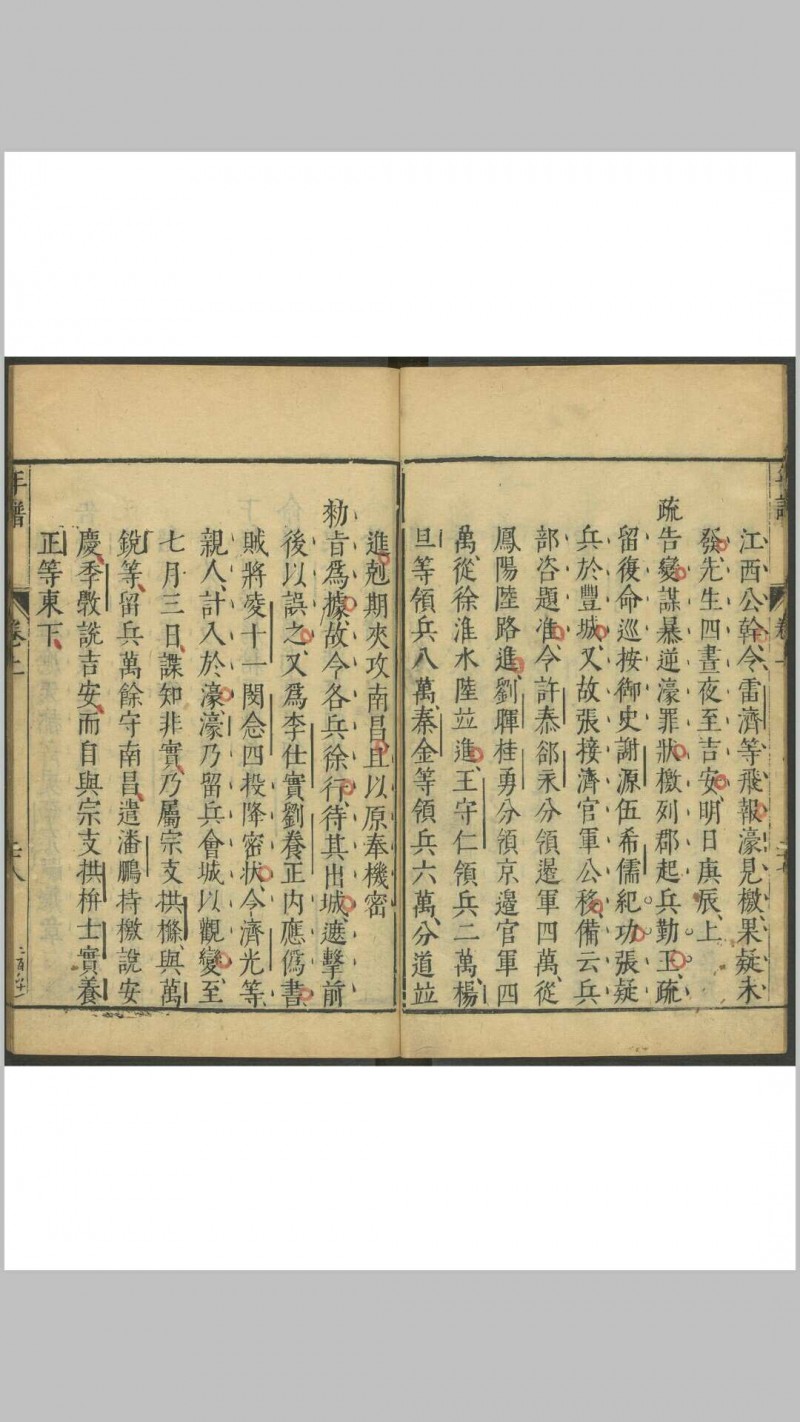 江西公幹令雷濟等飛報濠見檄果疑未
發先生四晝夜至吉安明日庚辰上
疏告變謀暴逆濠罪狀檄列郡起兵勤王疏
留復命巡按御史謝源伍希儒紀功張疑
兵於豐城又故張接濟官軍公移備云兵
部咨題准令許泰郤永分領邊軍四萬從
鳳陽陸路進劉暉桂勇分領京邊官軍四
萬從徐淮水陸並進王守仁領兵二萬楊
旦等領兵八萬秦金等領兵六萬分道並
進剋期夾攻南昌且以原奉機密
勑旨爲據故令各兵徐行待其出城遮擊前
後以誤之又爲李仕實劉養正内應僞書
賊將凌十一閔念四投降密狀令濟光等
親人計入於濠濠乃留兵會城以觀變至
七月三日諜知非實乃屬宗支拱樤與萬
銳等留兵萬餘守南昌遣潘鵬持檄說安
慶季斆說吉安而自與宗支拱栟士實養
正等東下
年譜
卷上